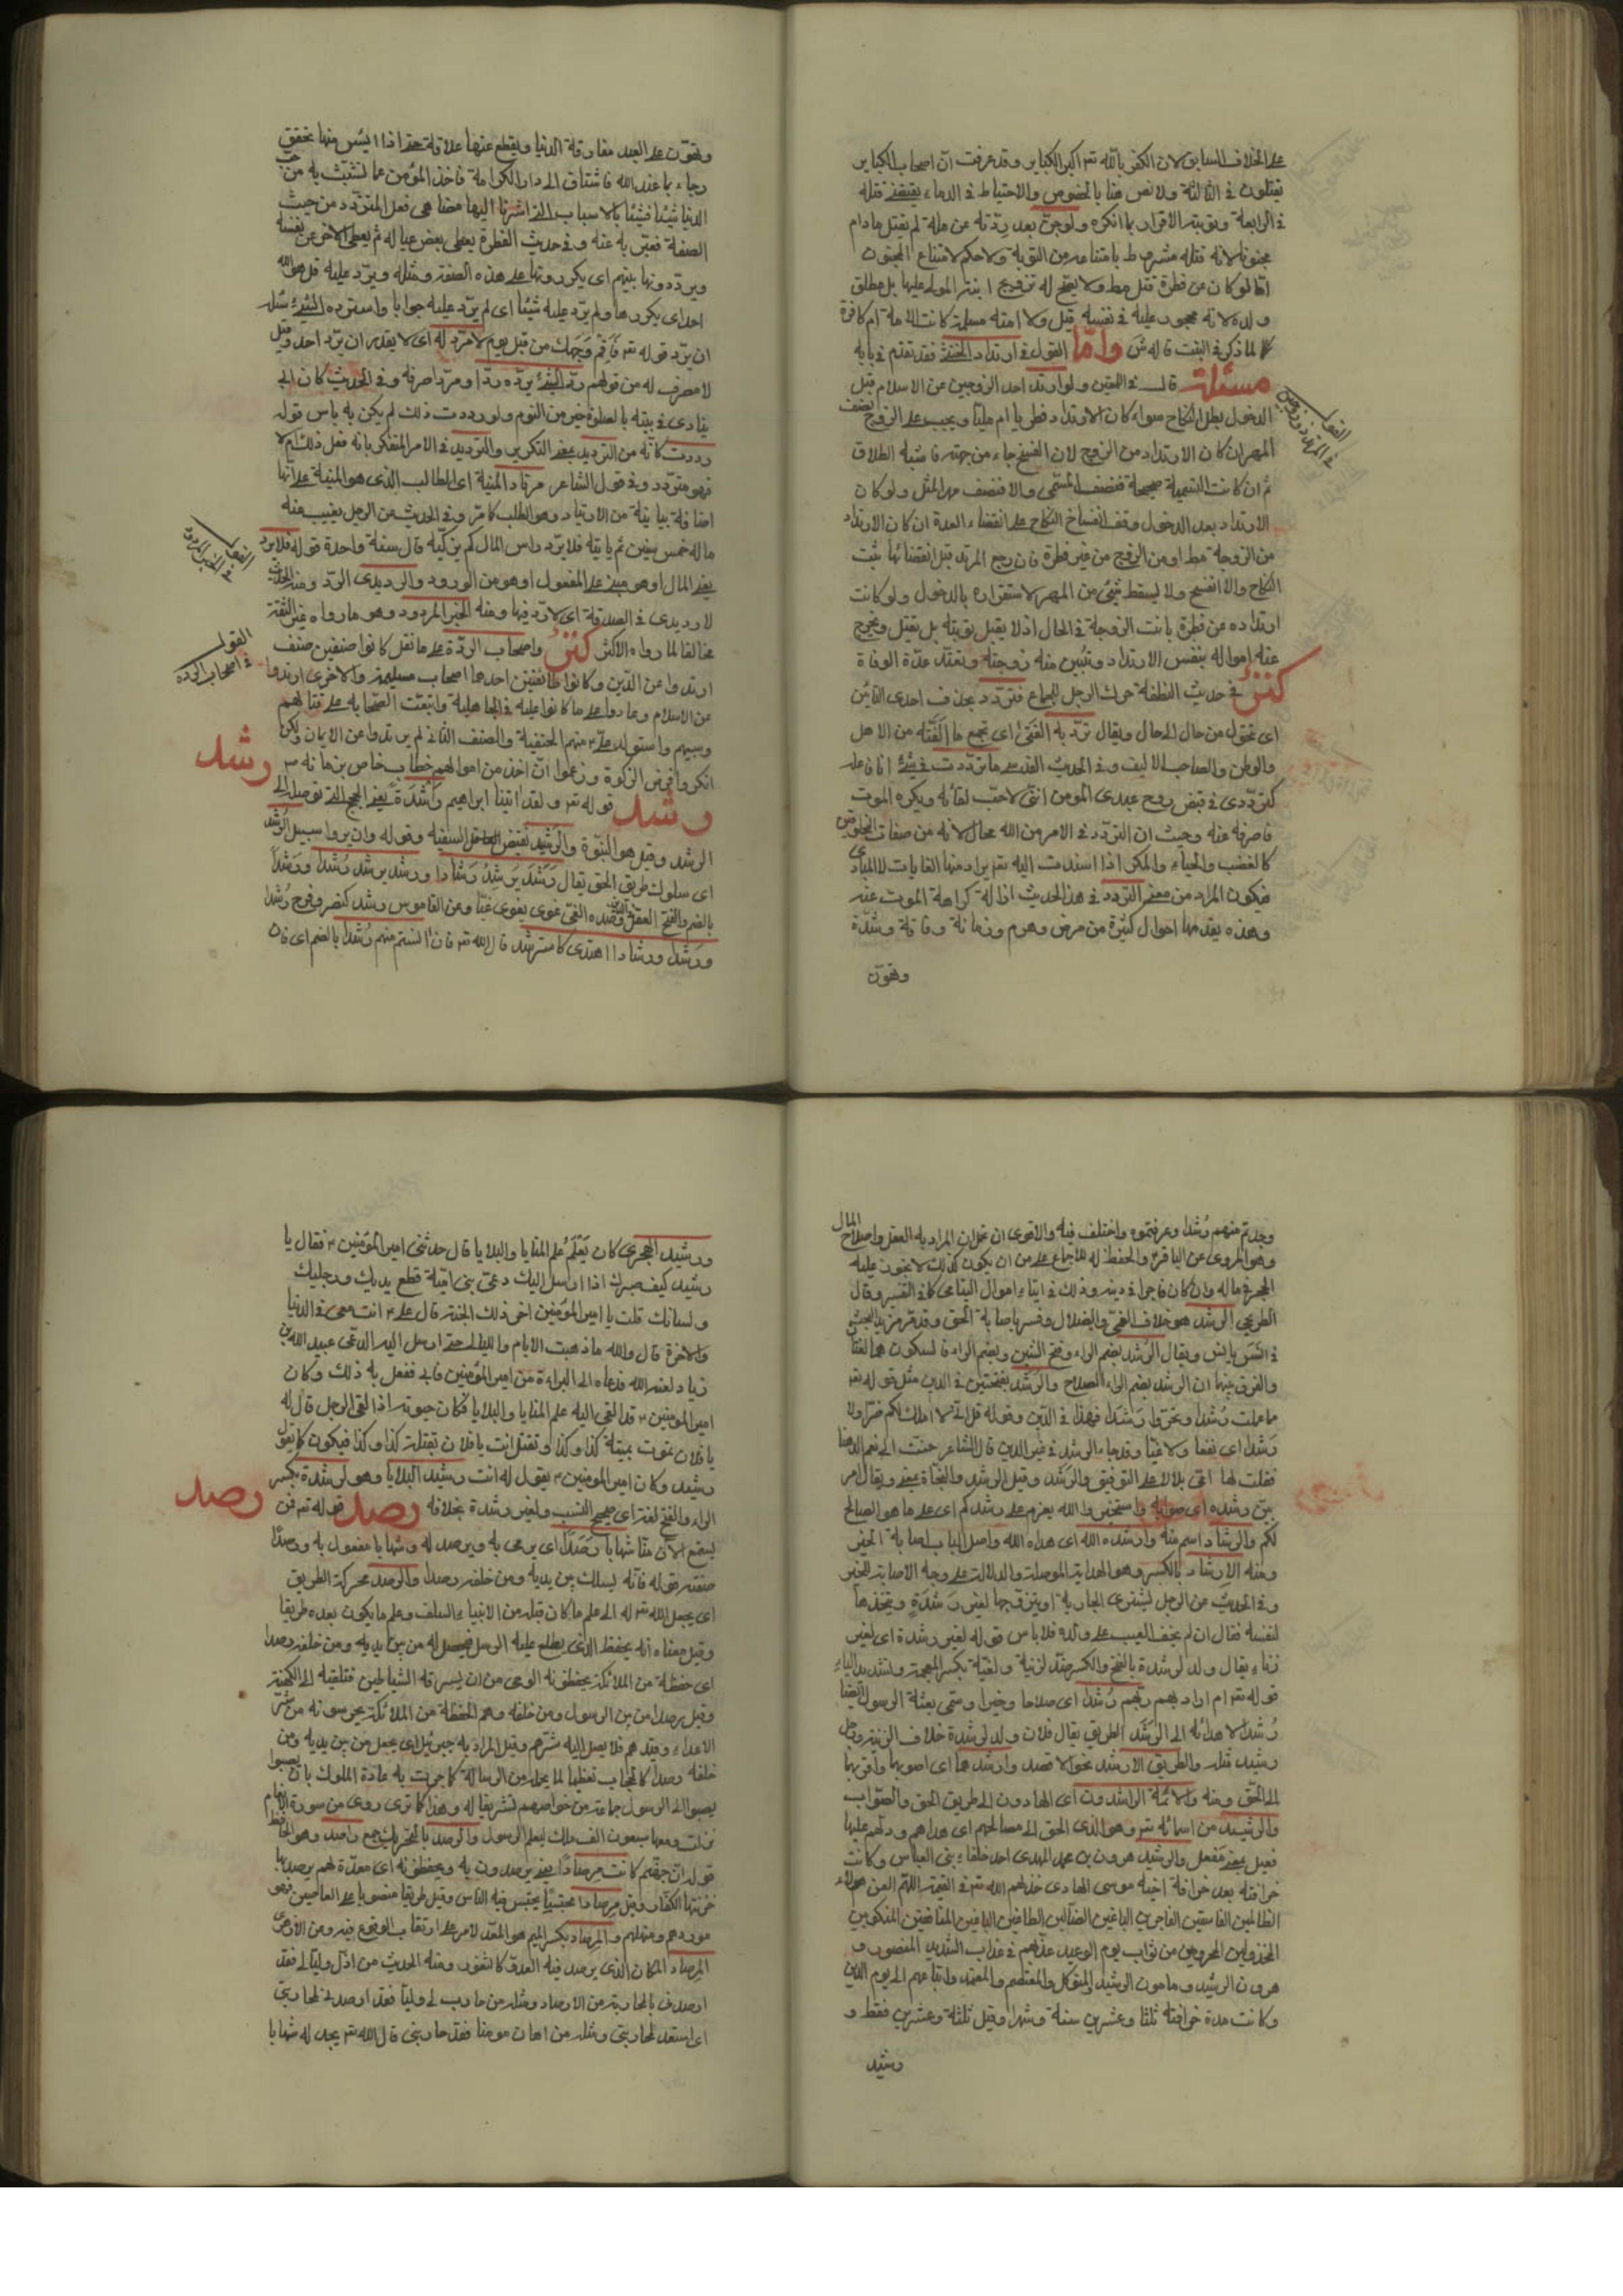 على الخلاف السابق لان الكفر بالله تع اكبر الكباير وقد عرفت انّ اصحاب الكباير
يقتلون فى الثالثة ولا نص هنا بالخصوص والاحتياط فى الدماء يقتضى قتله
فى الرابعة وتوبته الاقرار بما انكره ولو جنّ بعد ردّته عن ملة لم يقتل مادام
مجنونا لانه قتله مشروط بامتناعه من التوبة ولا حكم لامتناع المجنون
امّا لو كان عن فطرة قتل مط ولا يصح له تزويج ابنته المولى عليها بل مطلق
ولده لانه محجور عليه فى نفسه قيل ولا امته مسلمة كانت الامة ام كافرة
لما ذكر فى البنت قاله ش وامّا القول فى ارتداد الخنثى فقد تقدم فى بابه
مسئلة قال فى اللمعتين ولو ارتد احد الزوجين عن الاسلام قبل
الدخول بطل النكاح سواء كان الارتداد فطريا ام مليا ويجب على الزوج نصف
المهر ان كان الارتداد من الزوج لان الفسخ جاء من جهته فاشبه الطلاق
ثم ان كانت التسمية صحيحة فنصف المسمّى والا فنصف مهر المثل ولو كان
الارتداد بعد الدخول وقف انفساخ النكاح على انقضاء العدة ان كان الارتداد
من الزوجة مط او من الزوج من غير فطرة فان رجع المرتد قبل انقضائها ثبت
النكاح والا انفسخ ولا يسقط شئ من المهر لاستقراره بالدخول ولو كانت
ارتداده عن فطرة بانت الزوجة فى الحال اذ لا يقبل توبته بل يقتل ويخرج
عنه امواله بنفس الارتداد وتبين منه زوجته وتعتد عدّة الوفاة
كنز فى حديث النطفة حرك الرجل للجماع فتردد بحذف احدى التائين
اى تحول من حال الى حال ويقال تردّ به الفتى اى تجمع ما الفته من الاهل
والوطن والصاحب الاليف وفى الحديث القدسى ما تردّدت فى شئ انا فاعله
كتردّدى فى قبض روح عبدى المؤمن انّنى لاحبّ لقائه ويكره الموت
فاصرفه عنه وحيث ان التردّد فى الامر من الله محال لانه من صفات المخلوقين
كالغضب والحياء والمكر اذا اسندت اليه تع يراد منها الغايات لا المبادى
فيكون المراد من معنى التردد فى هذا الحديث ازالة كراهة الموت عنه
وهذه يتقدمها احوال كثيرة من مرض وهرم وزمانة وفاقة وشدّة
وتهوّن
القول
فى المرتد وزوجين
وتهوّن على العبد مفارقة الدنيا ويقطع عنها علاقته حتى اذا ايئس منها تحقق
رجاءه بما عند الله فاشتاق الى دار الكرامة فاخذ المؤمن عما تشبث به من حب
الدنيا شيئا فشيئا بالاسباب التى اشرنا اليها مضاهى فعل المتردّد من حيث
الصفة فعبّر به عنه وفى حديث الفطرة يعطى بعض عياله ثم يعطى الاخر عن نفسه
ويردّدونها بينهم اى يكررونها على هذه الصفة ومثله ويردّد عليه قل هو الله
احد اى يكررها ولم يردّ عليه شيئا اى لم يردّ عليه جوابا واستردّه الشئ سئله
ان يردّ قوله تع فاقم وجهك من قبل يوم لا مردّ له اى لا يقدر ان يردّ احد وقيل
لا مصرف له من قولهم ردّ الشئ يردّه ردّا ومردّا صرفه وفى الحديث كان ابى
ينادى فى بيته بالصلوة خير من النوم ولو رددت ذلك لم يكن به باس قوله
رددت كانّه من الترديد بمعنى التكرير والترديد فى الامر المتفكر بانه فعل ذلك ام لا
فهو متردّد وفى قول الشاعر مرتاد المنية اى الطالب الذى هو المنية على انّها
اضافة بيانية من الارتياد وهو الطلب كامر وفى الحديث عن الرجل يغيب عنه
ماله خمس سنين ثم ياتيه فلا يردّ راس المال كم يزكيه قال سنة واحدة قوله فلا يردّ
يعنى المال او هو مبنى على المفعول او هو من الورود والرديدى الردّ ومنه الحديث
لا رديدى فى الصدقة اى لا ردّ فيها ومنه الخبر المردود وهو ما رواه غير الثقة
مخالفا لما رواه الاكثر كنز واصحاب الردّة على ما نقل كانوا صنفين صنف
ارتدوا عن الدّين وكانوا طائفتين احدهما اصحاب مسيلمة والاخرى ارتدوا
عن الاسلام وعادوا على ما كانوا عليه فى الجاهلية واتفقت الصّحابه على قتالهم
وسبيهم واستولد علىّ ع منهم الحنفية والصنف الثانى لم يرتدوا عن الايمان ولكن
انكروا فرض الزكوة وزعموا انّ اخذ من اموالهم خطاب خاص بزمانه ص
رشد قوله تع ولقد اتينا ابراهيم رُشده يعنى الحجج التى توصله الى
الرشد وقيل هو النبوّة والرشيد نقيض السفيه وقوله وان يروا سبيل الرشد
اى سلوك طريق الحق يقال رَشَد يَرشُد رشادا ورشِد يرشَد رُشدا ورَشَداً
بالضم والفتح العقل وضده الغىّ غوى يغوى غيّا وعن القاموس رشد كنصر وفرح رُشدا
ورَشَدا ورشادا اهتدى كاسترشد قال الله تع فان انستم منهم رُشدا بالضم اى فان
القول
فى الخبر المردود
القول
فى اصحاب الردّه
رشد
وجدتم منهم رُشدا وعرفتموه واختلف فيه والاقوى ان يحمل ان المراد به العقل واصلاح المال
وهو المروى عن الباقر ع والحفظ له للاجماع على من ان يكون كذلك لا يجوز عليه
الحجر فى ماله وان كان فاجرا فى دينه وذلك فى ايتاء اموال اليتامى كما فى التفسير وقال
الطريحى الرشد هو خلاف الغىّ والضلال وفسر باصابة الحق وقد مرّ مزيد البحث
والفرق بينهما ان الرشد بضم الراء الصلاح والرشد بفتحتين فى الدين مثل قوله تع
مما علمت رُشدا وتحرّوا رَشَدا فهذا فى الدّين وقوله قل انى لا املك لكم ضرّا ولا
رشدا اى نفعا ولا غيّا وقد جاء الرشد فى غير الدين قال الشاعر
بيّن رشده اى صوابه واستخر والله يعزم على رشدكم اى على ما هو الصالح
لكم والرشاد اسم منه وارشده الله اى هداه الله واصل الباب اصابة الخير
ومنه الارشاد بالكسر وهو الهداية الموصلة والدلالة على وجه الاصابة للخير
وفى الحديث عن الرجل يشترى الجارية او يتزوجها لغير رشدةٍ ويتخذها
لنفسه فقال ان لم يخف العيب على ولده فلا باس قوله لغير رشدة اى لغير
زناء يقال ولد لرشدة بالفتح والكسر ضدّ لزنية ولغيّة بكسر المعجمة وتشديد الياء
قوله تع ام اراد بهم ربهم رُشدا اى صلاحا وخيرا وسمى بعثة الرسول ايضا
رُشدا لاهدائه الى الرَشَد الطريق يقال فلان ولد لرشدة خلاف الزنية ورجل
رشيد مثله والطريق الارشد نحو الاقصد وارشدهما اى اصوبهما واقربهما
الى الحق ومنه والائمة الراشدون اى الهادون الى طريق الحق والصّواب
والرشيد من اسمائه تع وهو الذى الحق الى مصالحهم اى هداهم ودلّهم عليها
فعيل بمعنى مُفعل والرشيد هرون بن محمد المهدى احد خلفاء بنى العباس وكانت
خلافته بعد خلافة اخيه موسى الهادى خذلهم الله تع فى القيمة اللهم العن هولاء
الظالمين الفاسقين الفاجرين الباغين الضالين الطاغين
المخذولين المحرومين من ثواب يوم الوعيد عذّبهم فى عذاب الشديد المنصور و
هرون الرشيد ومامون الرشيد والمتوكل والمعتصم والمعتمد واتباعهم الى يوم الدين
وكانت مدة خلافته ثلثا وعشرين سنة وشهرا وقيل ثلثة وعشرين فقط و
رشيد
ورشيد الهجرى كان يَعْلَمُ علم المنايا والبلايا قال حدثنى امير المؤمنين ع فقال يا
رشيد كيف صبرك اذا ارسل اليك دعىّ بنى اميّة قطع يديك ورجليك
ولسانك قلت يا امير المؤمنين اخر ذلك الجنة قال على ع انت معى فى الدنيا
والاخرة قال والله ما ذهبت الايام والليالى حتى ارسل اليه الدعى عبيد الله بن
زياد لعنه الله فدعاه الى البراءة من امير المؤمنين فابى ففعل به ذلك وكان
امير المؤمنين ع قد القى اليه علم المنايا والبلايا فكان حيوته اذا لقى الرجل قال له
يا فلان تموت بميتة كذا وكذا وتقتل انت يا فلان بقتلة كذا وكذا فيكون كما يقول
رشيد وكان امير المؤمنين ع يقول له انت رشيد البلايا وهو لرشدة بكسر
الراء والفتح لغة اى صحيح النسب ولغير رشدة بخلافه رصد قوله تع فمن
يستمع الآن منّا شهابا رَصَداً اى يرمى به ويرصد له وشهابا مفعول به ورصدًا
صفته قوله فانه يسلك من بين يديه ومن خلفه رصدا والرصد محركة الطريق
اى يجعل الله تع له الى علم ما كان قبله من الانبياء والسلف وعلم ما يكون بعده طريقا
وقيل معناه انه يحفظ الذى يطلع عليه الرسل فيجعل له من بين يديه ومن خلفه رصدا
اى حفظة من الملائكة يحفظونه الوحى من ان يسرقه الشياطين فتلقيه الى الكهنة
وقيل رصدا من بين الرسول ومن خلفه وهم الحفظة من الملائكة يحرسونه من شرّ
الاعداء وقيدهم فلا يصل اليه شرّهم وقيل المراد به جبرئيل اى يجعل من بين يديه ومن
خلفه رصدا كالحجاب تعظيما لما يحمله من الرسالة كما جرت به عادة الملوك بان يضموا
الى الرسول جماعة من خواصهم تشريفا له وهذا كما ترى روى من سورة الانعام
نزلت ومعها سبعون الف ملك ليعلم الرسول والرصد بالتحريك جمع راصد وهو الحافظ
قوله انّ جهنم كانت مرصادًا يعنى يرصدون به ويحفظونه اى معدّة لهم يرصد بها
خزنتها الكفّار وقيل مرصادا محتبسا يحتبس فيه الناس وقيل طريقا منصوبا على العاصين فهو
موردهم ومنهلهم والمرصاد بكسر الميم هو المعدّ لامر على ارتقاب الوقوع فيه
المرصاد المكان الذى يرصد فيه العدوّ كالثغور ومنه الحديث من اذلّ وليّا لى فقد
ارصدنى بالمحاربة من الارصاد ومثله من حارب لى وليّا فقد ارصد لمحاربتى
اى استعد لمحاربتى ومثله من اهان مومنا فقد حاربنى قال الله تع يجد له شهابا
رصد